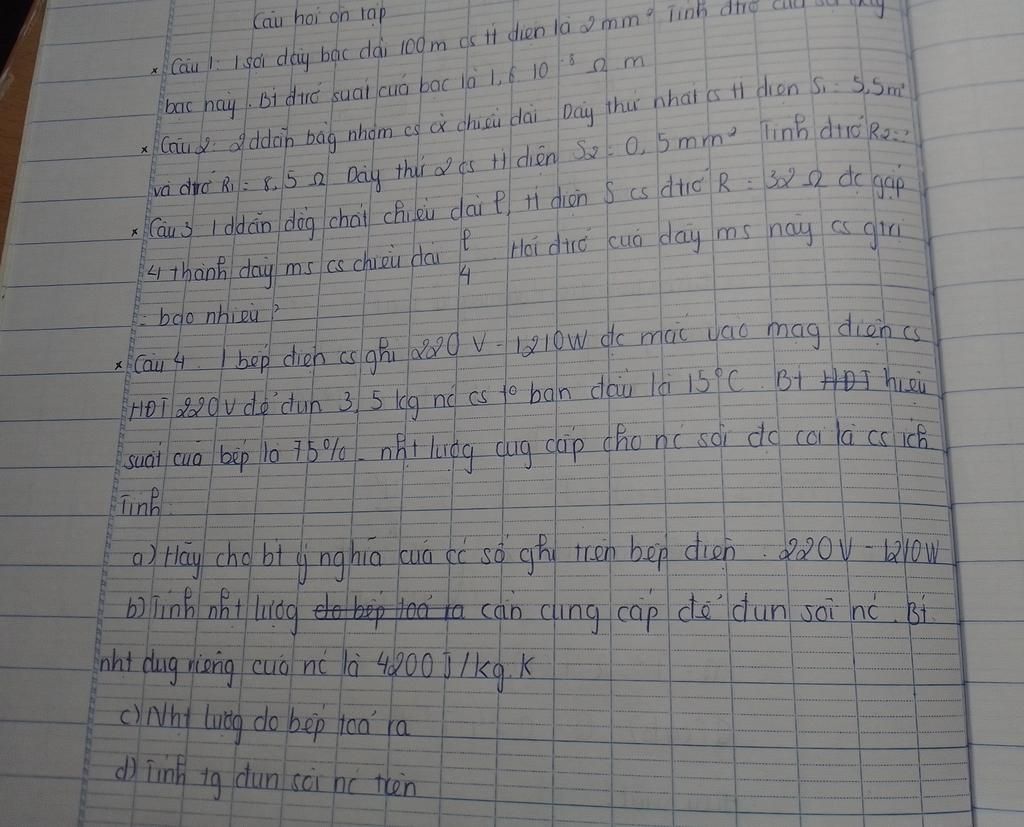 Câu hỏi ôn tập
* Câu 1: 1 sợi dây bạc dài 100m cs tt diện là 2mm² Tính đtrở của
bạc này. Bt đtrở suất của bạc là 1,6.10⁻⁸ Ω m
* Câu 2: 2 ddẫn bằg nhôm cs cx chiều dài Dây thứ nhất cs tt diện S₁ = 5,5m²
và đtrở R₁ = 8,5 Ω Dây thứ 2 cs tt diện S₂ = 0,5mm² Tính đtrở R₂ = ?
* Câu 3 1 ddẫn đồg chất chiều dài l, tt diện S cs đtrở R = 32 Ω đc gấp
4 thành dây ms cs chiều dài l/4 Hỏi đtrở của dây ms này cs gtrị
= bao nhiêu?
* Câu 4. 1 bếp điện cs ghi 220V - 1210W đc mắc vào mạg điện cs
HĐT 220V để đun 3,5kg nc cs to ban đầu là 15°C. Bt HĐT hiệu
suất của bếp là 75% - nht lượg cug cấp cho nc sôi đc coi là cs ích
Tính:
a) Hãy cho bt ý nghĩa của cc số ghi trên bếp điện. 220V - 1210W
b) Tính nht lượg do bếp toả ra cần cung cấp để đun sôi nc. Bt
nht dug riêng của nc là 4200J/kg.K
c) Nht lượg do bếp toả ra
d) Tính tg đun sôi nc trên